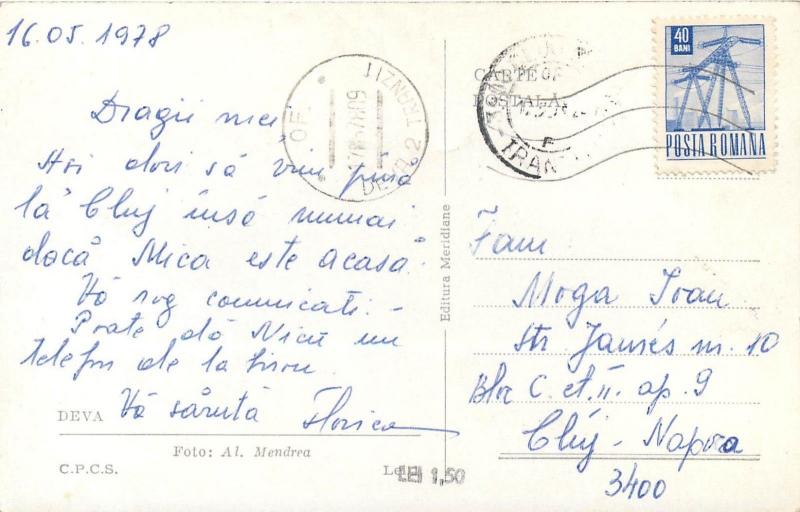 16.05.1978
Dragii mei
Aşi dori să vin până
la Cluj însă numai
dacă Mica este acasă.
Vă rog comunicaţi. –
Poate dă Nicu un
telefon de la birou.
Vă sărută Florica
DEVA
Foto: Al. Mendrea
C.P.C.S.
LEI 1,50
Editura Meridiane
CARTE
POSTALA
40
BANI
POSTA ROMANA
OF.
DEVA 2
Fam
Moga Ioan
Str Jaurés nr. 10
Bloc C. et. II. ap. 9
Cluj – Napoca
3400